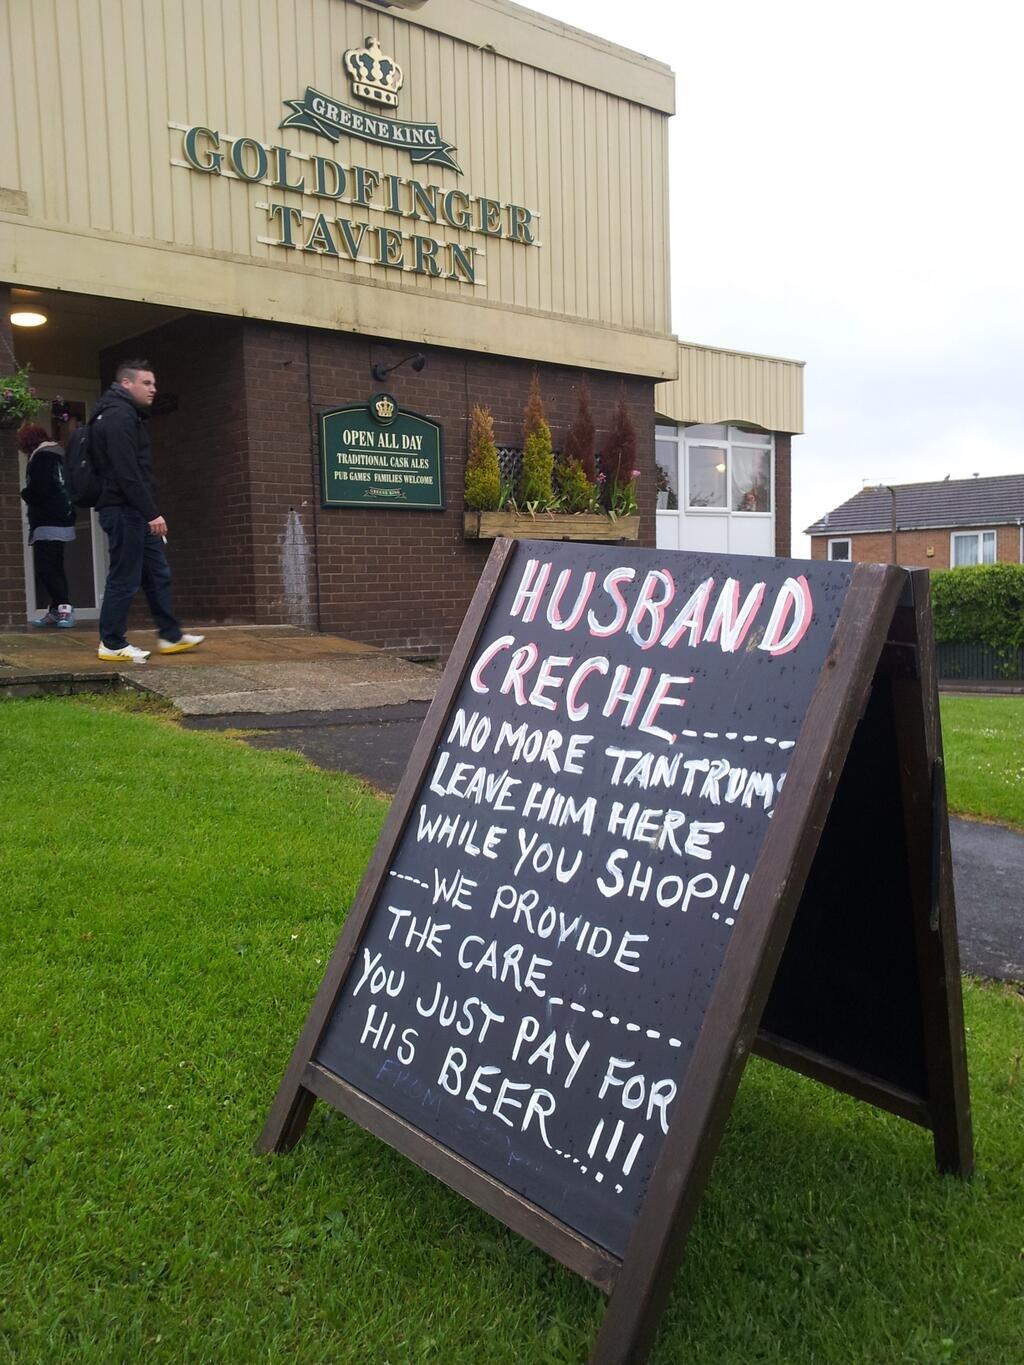 GREENE KING
GOLDFINGER
TAVERN
OPEN ALL DAY
TRADITIONAL CASK ALES
PUB GAMES FAMILIES WELCOME
GREENE KING
HUSBAND
CRECHE......
NO MORE TANTRUMS
LEAVE HIM HERE
WHILE YOU SHOP!!
....WE PROVIDE
THE CARE.......
YOU JUST PAY FOR
HIS BEER....!!!
FROM